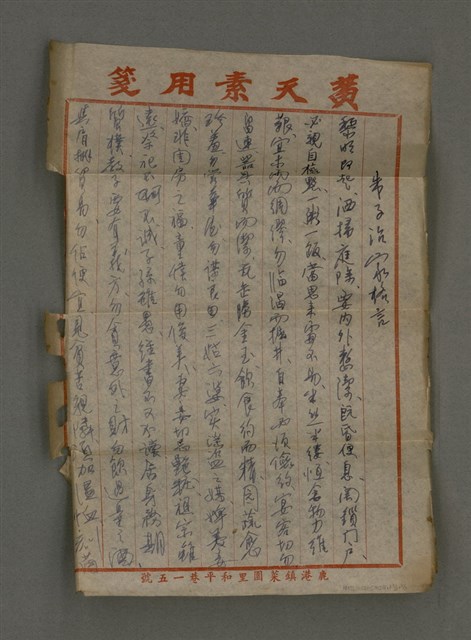 黃天素用箋
朱子治家格言
黎明即起 洒掃庭除 要內外整潔 既昏便息 関鎖門戶
必親自檢點 一粥一飯 當思來處不易 半丝半缕 恒念物力維
艱 宜未雨而綢繆 勿臨渴而掘井 自奉必須儉約 宴客切勿
留連 器具質而潔 瓦缶勝金玉 飲食約而精 园蔬愈
珍羞 勿營華屋 勿謀良田 三姑六婆 实淫盗之媒 婢美妾
嬌 非闺房之福 童僕勿用俊美 妻妾切忌艷粧 祖宗雖
遠 祭祀不可不誠 子孫雖愚 經書不可不讀 居身務期
質樸 教子要有義方 勿貪意外之財 勿飲過量之酒
與肩挑貿易勿佔便宜 見貧苦親隣 須加温恤
鹿港鎮菜園里和平巷一五號